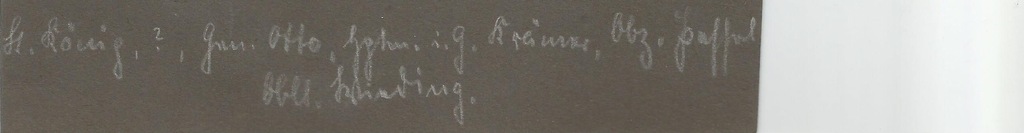 Lt. König, ?, Gen. Otto, Hptm. i. G. Krämer, Obz.
Oblt. Wieding.